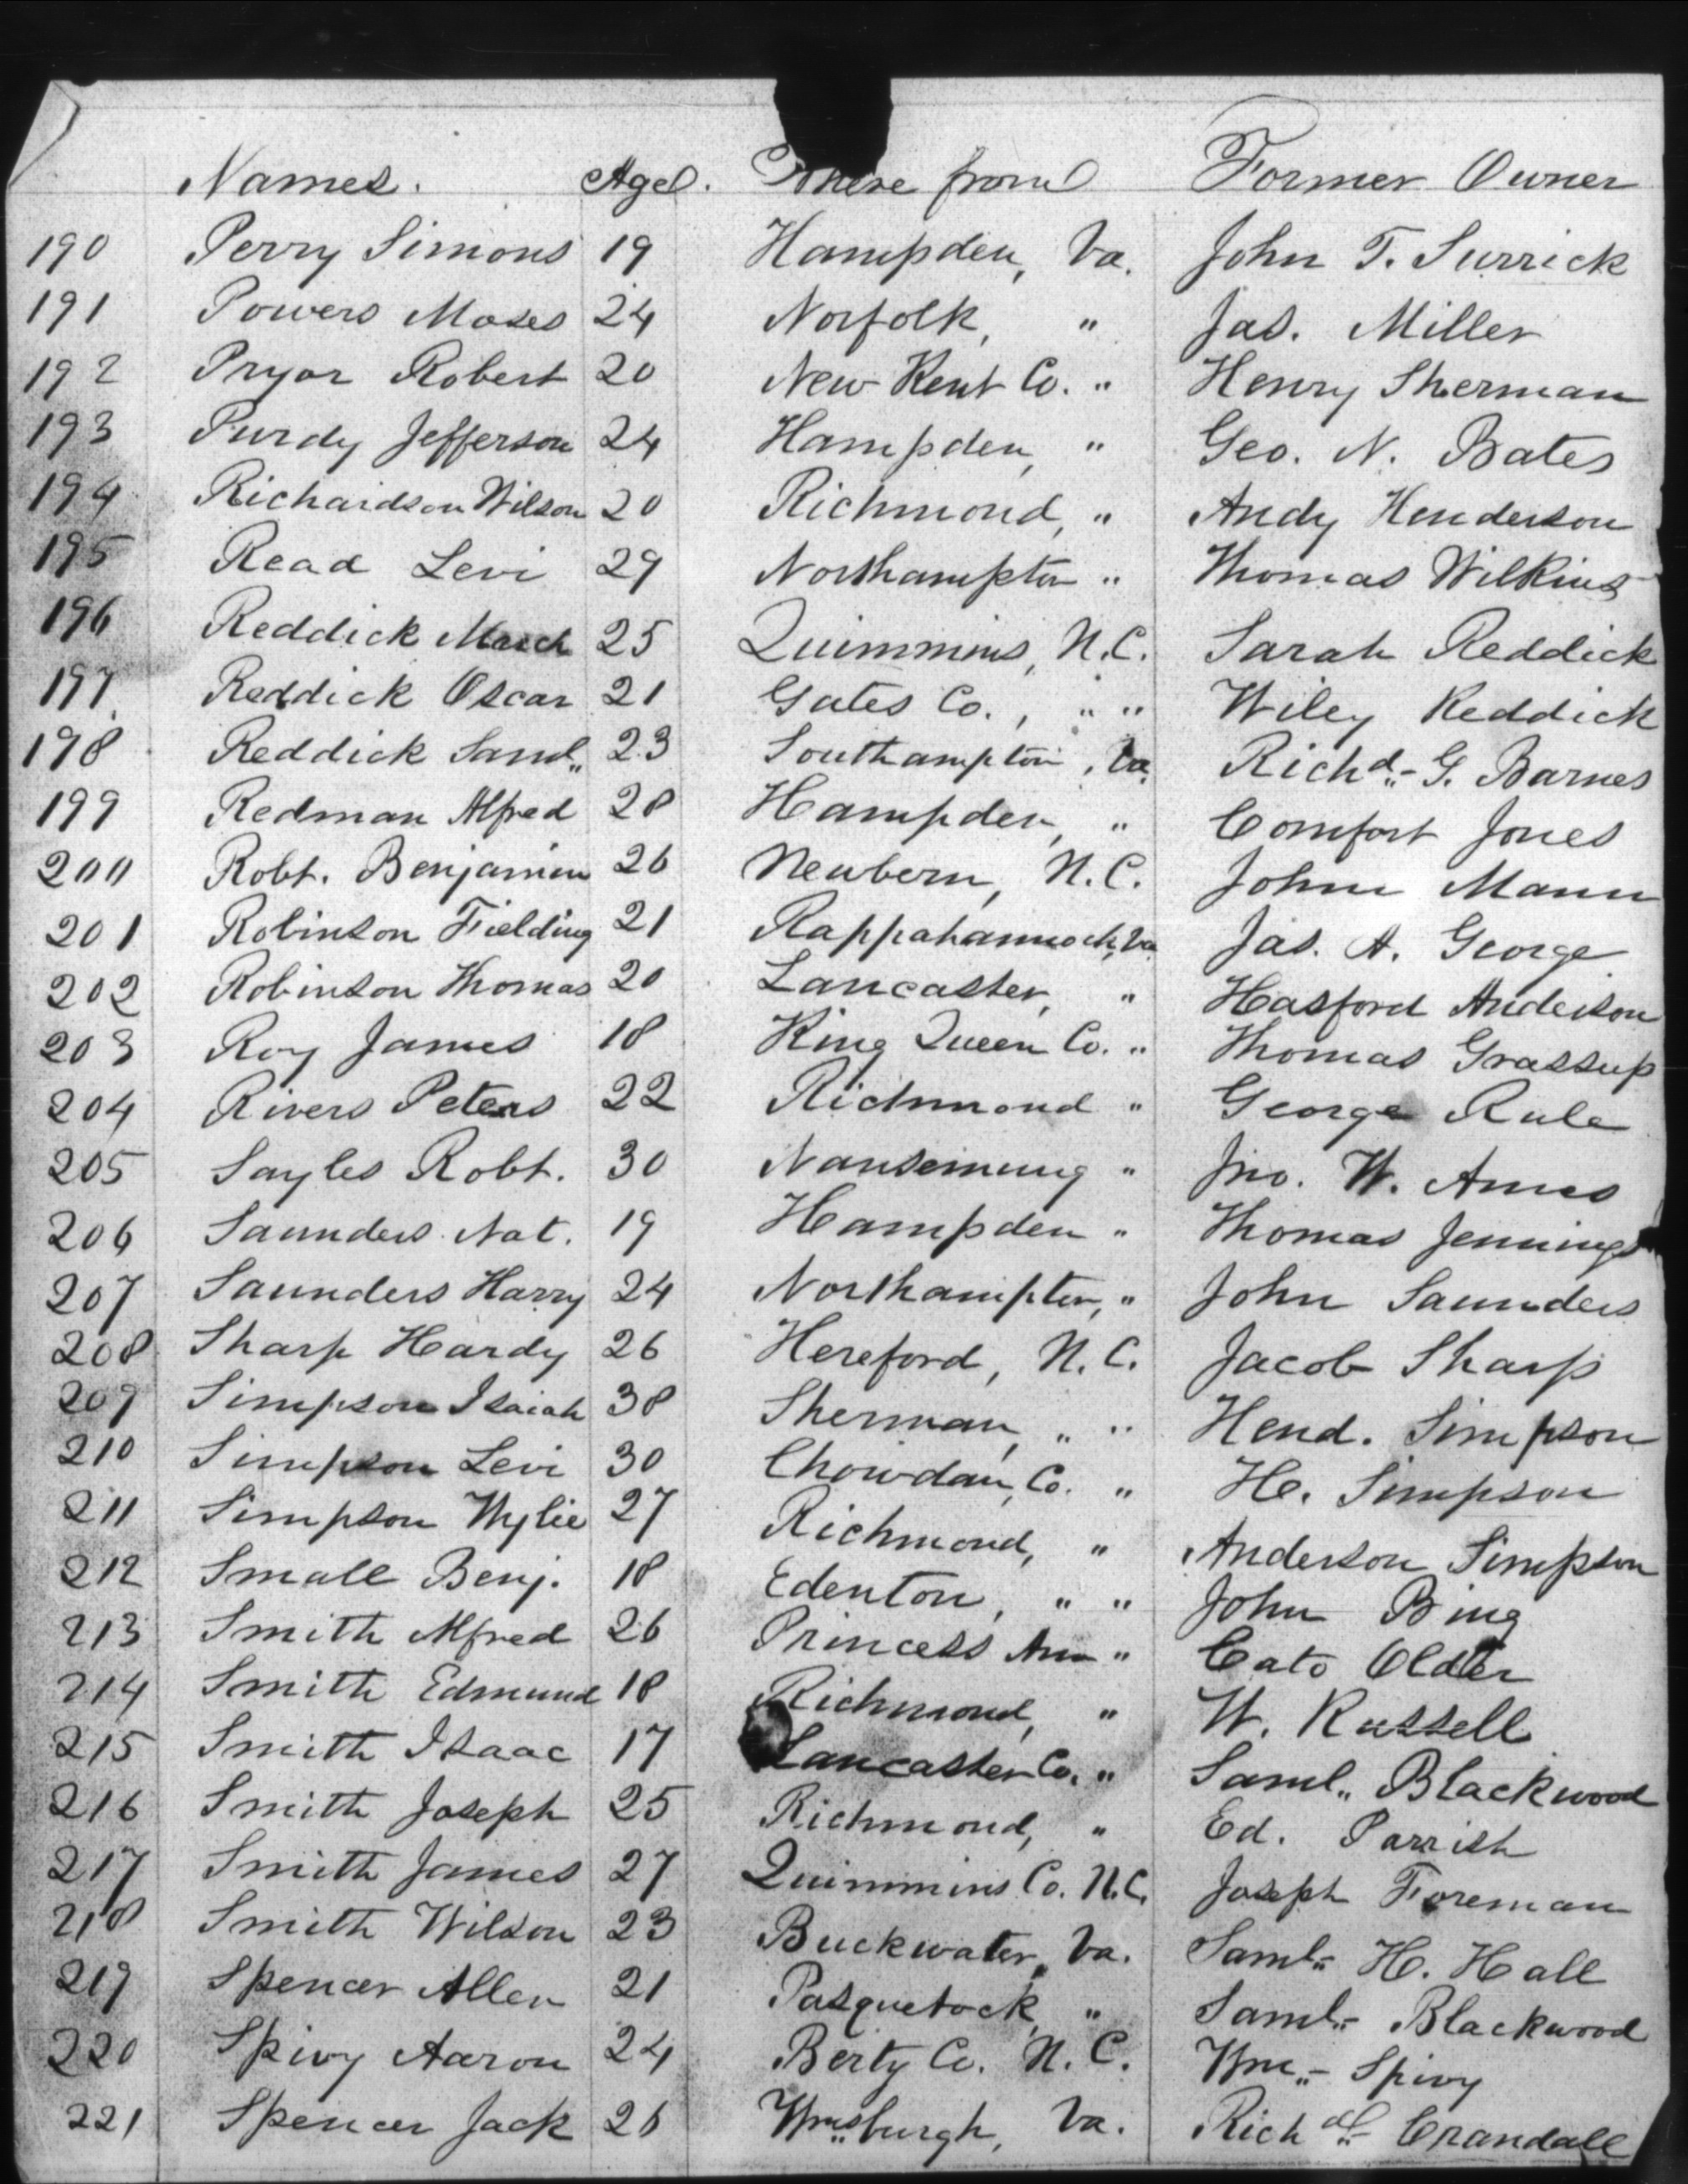 Names. Age. Where from Former Owner
190 Perry Simons 19 Hampden, Va. John T. Surrick
191 Powers Moses 24 Norfolk, " Jas. Miller
192 Pryor Robert 20 New Kent Co. " Henry Sherman
193 Purdy Jefferson 24 Hampden, " Geo. N. Bates
194 Richardson Wilson 20 Richmond, " Andy Henderson
195 Read Levi 29 Northampton " Thomas Wilkins
196 Reddick March 25 Quimmins, N.C. Sarah Reddick
197 Reddick Oscar 21 Gates Co., " " Wiley Reddick
198 Reddick Saml. 23 Southampton, Va. Richd. G. Barnes
199 Redman Alfred 28 Hampden, " Comfort Jones
200 Robt. Benjamin 26 Newbern, N.C. John Mann
201 Robinson Fielding 21 Rappahannock, Va. Jas. A. George
202 Robinson Thomas 20 Lancaster, " Hasford Anderson
203 Roy James 18 King Queen Co. " Thomas Grassup
204 Rivers Peters 22 Richmond " George Rule
205 Sayles Robt. 30 Nansemung " Jno. W. Ames
206 Saunders Nat. 19 Hampden " Thomas Jennings
207 Saunders Harry 24 Northampton, " John Saunders
208 Sharp Hardy 26 Hereford, N.C. Jacob Sharp
209 Simpson Isaiah 38 Sherman, " " Hend. Simpson
210 Simpson Levi 30 Chowdan, Co. " H. Simpson
211 Simpson Wylie 27 Richmond, " Anderson Simpson
212 Small Benj. 18 Edenton, " " John Bing
213 Smith Alfred 26 Princess Ann " Cato Older
214 Smith Edmund 18 Richmond, " W. Russell
215 Smith Isaac 17 Lancaster Co. " Saml. Blackwood
216 Smith Joseph 25 Richmond, " Ed. Parrish
217 Smith James 27 Quimmins Co. N.C. Joseph Foreman
218 Smith Wilson 23 Buckwater, Va. Saml. H. Hall
219 Spencer Allen 21 Pasquetock, " Saml. Blackwood
220 Spivy Aaron 24 Berty Co. N.C. Wm. Spivy
221 Spencer Jack 26 Wmsburgh, Va. Richd. Crandall